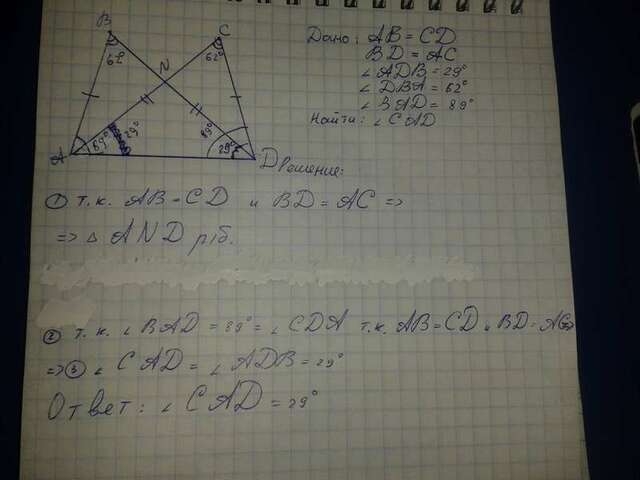 B
C
N
62°
62°
89°
29°
89°
29°
A
D
Дано: AB = CD
BD = AC
∠ADB = 29°
∠DBA = 62°
∠BAD = 89°
Найти: ∠CAD
Решение:
① т.к. AB = CD и BD = AC =>
=> △ AND ріб.
② т.к. ∠BAD = 89° = ∠CDA т.к. AB = CD и BD = AC =>
=> ③ ∠CAD = ∠ADB = 29°
Ответ: ∠CAD = 29°